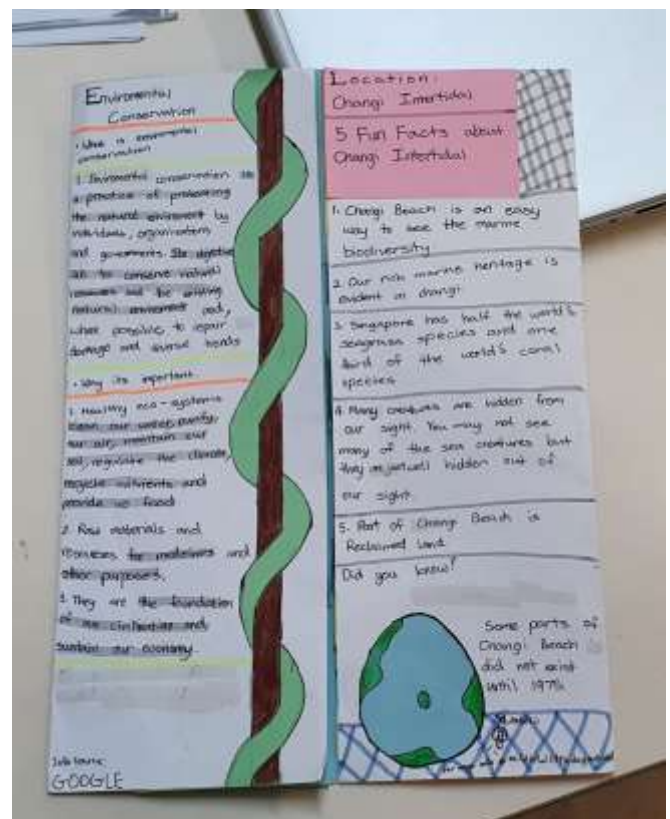 Enviromental
Conservation
• What is enviromental
conservation
1. Enviromental conservation is
a practice of protecting
the natural enviroment by
individuals, organisations
and governments. Its objective
are to conserve natural
resources and the existing
natural enviroment and,
where possible, to repair
damage and reverse trends
• Why its important
1. Healthy eco-systems
clean our water, purify
our air, maintain our
soil, regulate the climate,
recycle nutrients and
provide us food
2. Raw materials and
resources for medicines and
other purposes.
3. They are the foundation
of our civilisation and
sustain our economy.
Info Source:
GOOGLE
Location:
Changi Intertidal
5 Fun Facts about
Changi Intertidal
1. Changi Beach is an easy
way to see the marine
biodiversity
2. Our rich marine heritage is
evident in changi
3. Singapore has half the world's
seagrass species and one
third of the world's coral
species
4. Many creatures are hidden from
our sight. You may not see
many of the sea creatures but
they are hidden out of
our sight
5. Part of Changi Beach is
Reclaimed land
Did you know?
Some parts of
Changi Beach
did not exist
until 1975